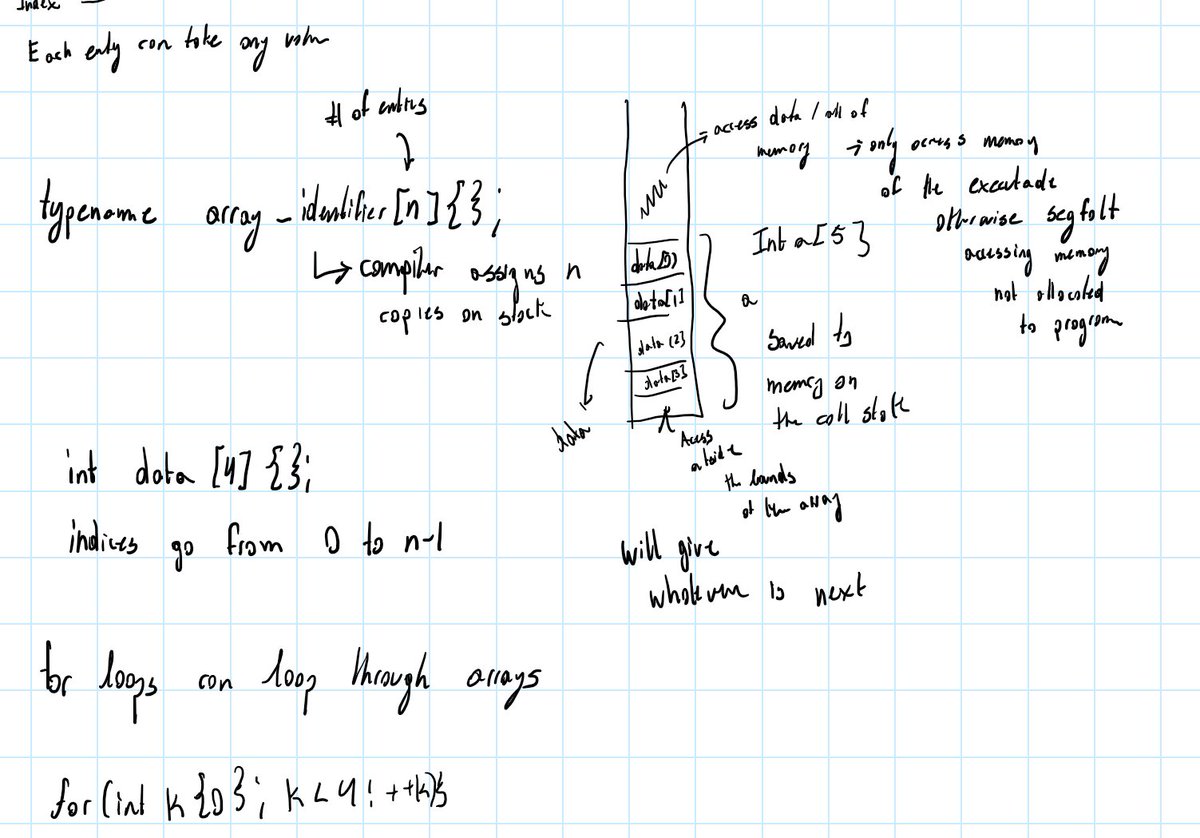 Index
Each enty can take any valu
# of entris
typename array_identifier[n]{};
↳ compiler assigns n
copies on stack
int data [4] {};
indices go from 0 to n-1
for loops can loop through arrays
for (int k {0}; k < 4; ++k){
→ access data / all of
memory → only access memory
of the executade
otherwise segfolt
accessing memory
not allocated
to program
Int a[5}
data[0]
data[1]
data[2]
data[3]
a
data
saved to
memory on
the call stack
Acess
outside
the bounds
of the array
will give
whatever is next